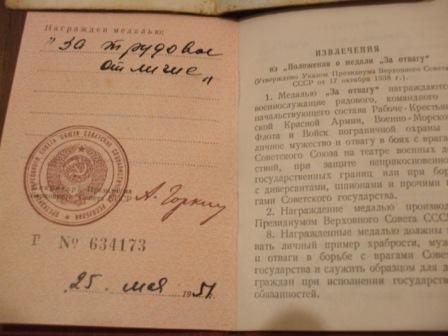 Награжден медалью:
"за трудовое
отличие"
Секретарь Президиума
Верховного Совета СССР
А. Горкин
Г № 634173
25. мая 1951.
ИЗВЛЕЧЕНИЯ
из „Положения о медали „За отвагу"
(Утверждено Указом Президиума Верховного Совета
СССР от 17 октября 1938 г.).
1. Медалью „За отвагу" награждаются
военнослужащие рядового, командного
начальствующего состава Рабоче-Крестьян
ской Красной Армии, Военно-Морского
Флота и Войск пограничной охраны
личное мужество и отвагу в боях с врага
Советского Союза на театре военных де
ствий, при защите неприкосновенно
государственных границ или при борь
с диверсантами, шпионами и прочими
гами Советского государства.
2. Награждение медалью производ
Президиумом Верховного Совета СССР
8. Награжденные медалью должны
вать личный пример храбрости, муж
и отваги в борьбе с врагами Советс
государства и служить образцом для
граждан при исполнении государствен
обязанностей.